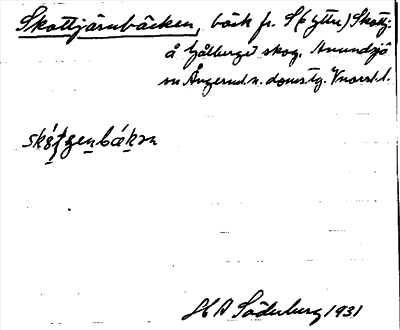 Skottjärnbäcken, bäck fr. S (o ytter) Skottj.
å Gålberget skog. Anundsjö
sn Ångerml. n. doms. tg. Vnorrl. l.
H A Söderberg 1931